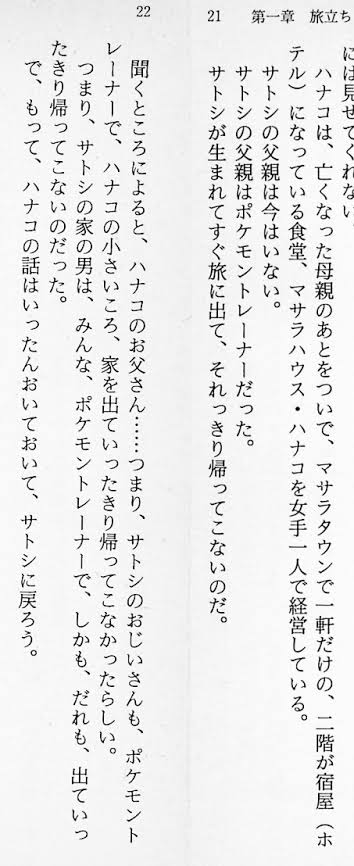 21　第一章　旅立ち
には見せてくれない。
　ハナコは、亡くなった母親のあとをついで、マサラタウンで一軒だけの、二階が宿屋（ホ
テル）になっている食堂、マサラハウス・ハナコを女手一人で経営している。
　サトシの父親は今はいない。
　サトシの父親はポケモントレーナーだった。
　サトシが生まれてすぐ旅に出て、それっきり帰ってこないのだ。
22
　聞くところによると、ハナコのお父さん……つまり、サトシのおじいさんも、ポケモント
レーナーで、ハナコの小さいころ、家を出ていったきり帰ってこなかったらしい。
　つまり、サトシの家の男は、みんな、ポケモントレーナーで、しかも、だれも、出ていっ
たきり帰ってこないのだった。
　で、もって、ハナコの話はいったんおいておいて、サトシに戻ろう。